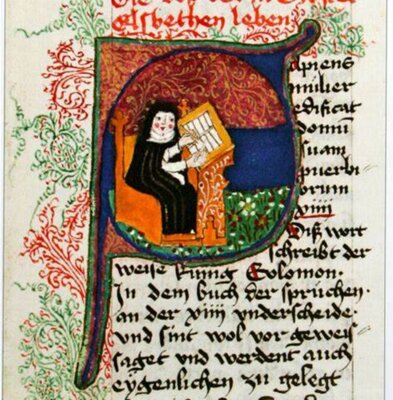 Elsbethen leben
apiens
mulier
edificat
domū
suam
puerbi
orum
xiiij
Diß wort
schreibt der
weise kunig Solomon.
In dem buch der sprüchen.
an der xiiij vnderscheide.
vnd sint wol vor geweis
saget vnd werdent auch
eygenlichen zu gelegt